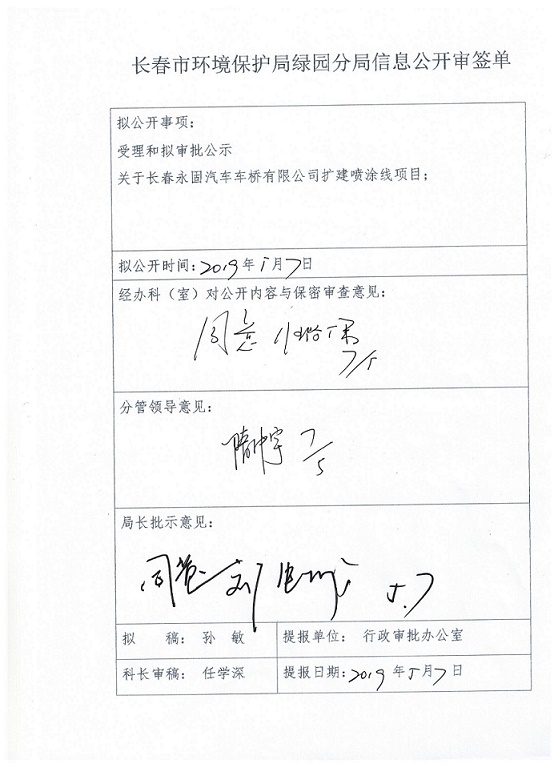 长春市环境保护局绿园分局信息公开审签单
拟公开事项：
受理和拟审批公示
关于长春永固汽车车桥有限公司扩建喷涂线项目；
拟公开时间：2019年5月7日
经办科（室）对公开内容与保密审查意见：
同意
7/5
分管领导意见：
7/5
局长批示意见：
同意 5.7
拟 稿：孙 敏 提报单位：行政审批办公室
科长审稿：任学深 提报日期：2019年5月7日